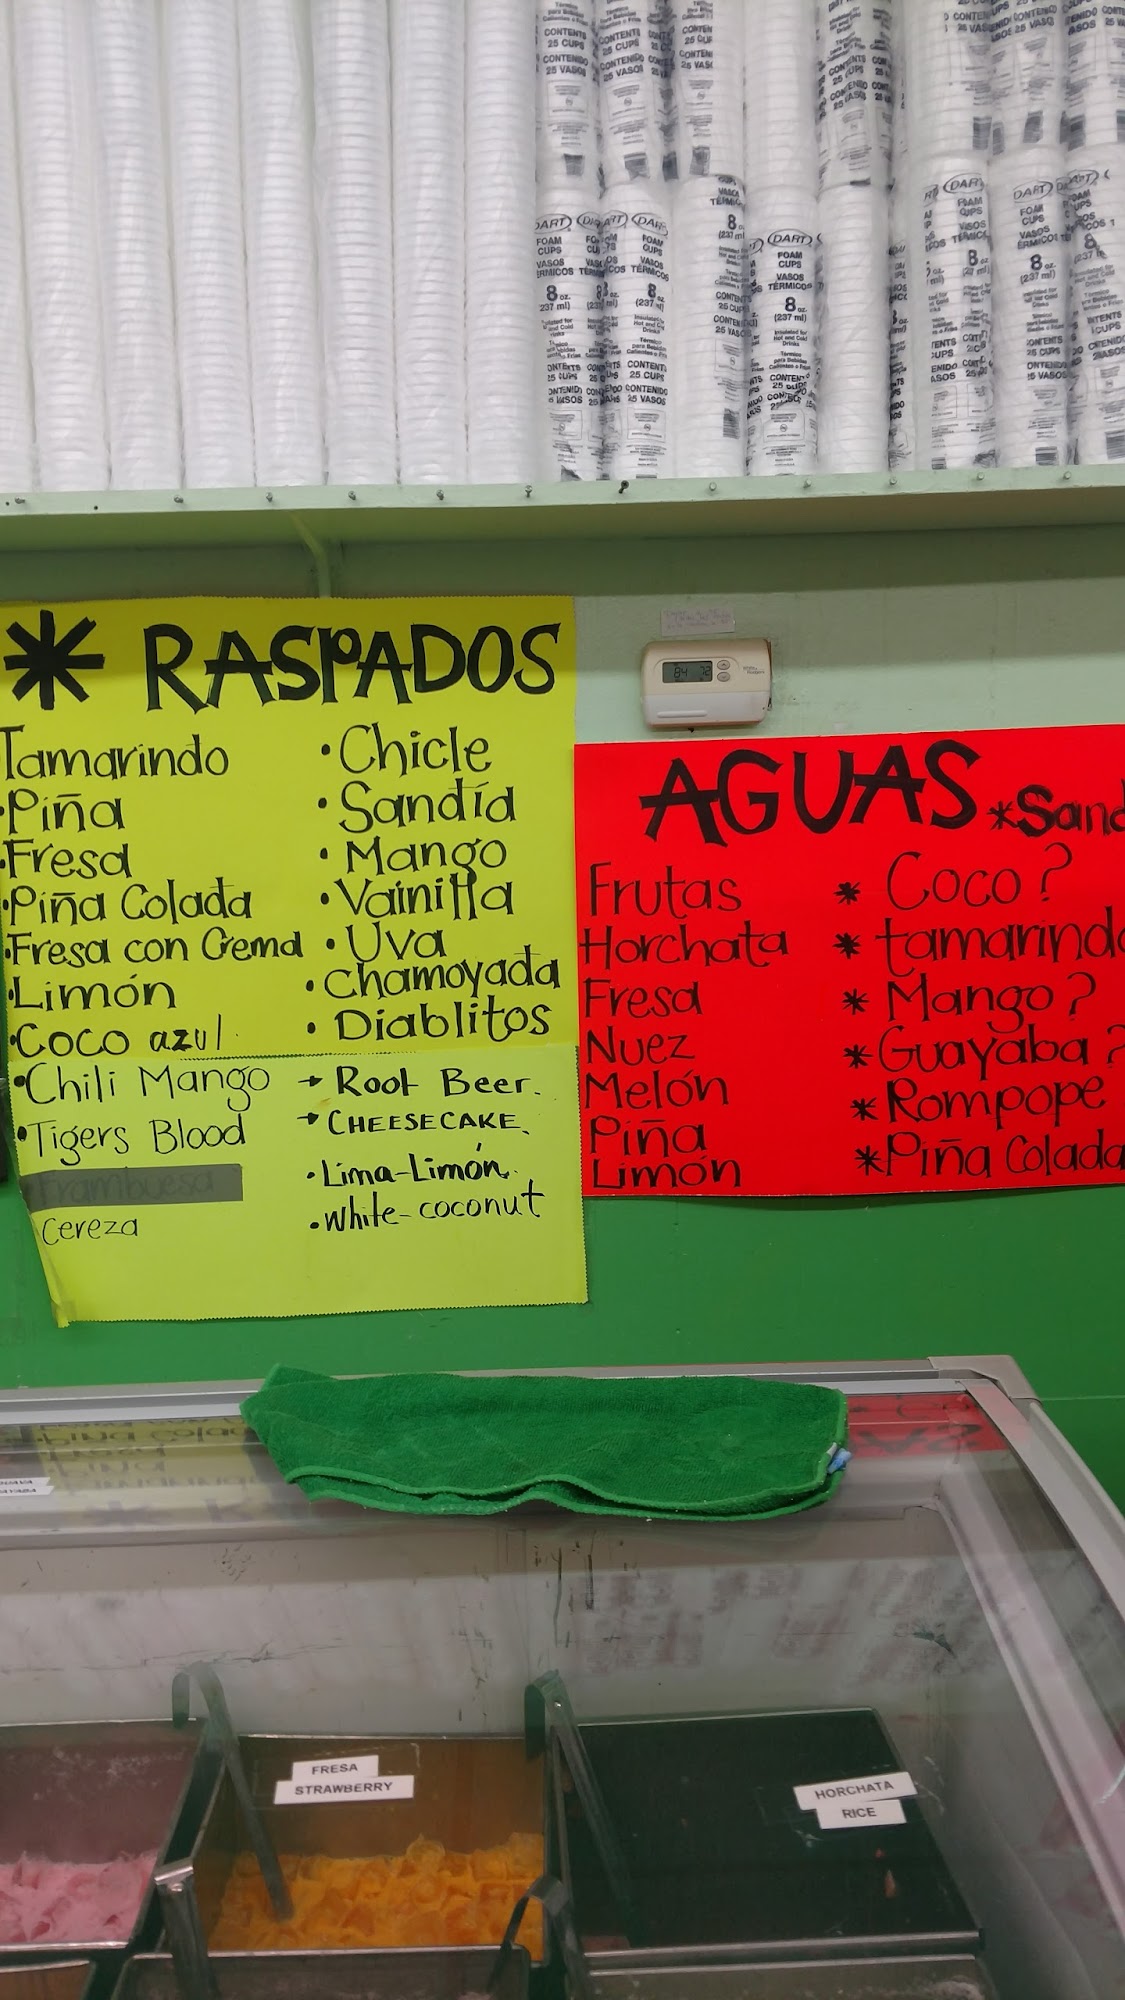 CONTENTS
25 CUPS
CONTENIDO
25 VASOS
DART
FOAM
CUPS
VASOS
TÉRMICOS
8 oz.
(237 ml)
Insulated for
Hot and Cold
Drinks
Térmico
para Bebidas
Calientes o Frías
CONTENTS
25 CUPS
CONTENIDO
25 VASOS
DART
FOAM
CUPS
VASOS
TÉRMICOS
8 oz.
(237 ml)
* RASPADOS
Tamarindo
• Piña
• Fresa
• Piña Colada
• Fresa con Crema
• Limón
• Coco azul.
• Chili Mango
• Tigers Blood
Frambuesa
Cereza
• Chicle
• Sandía
• Mango
• Vainilla
• Uva
• Chamoyada
• Diablitos
→ Root Beer.
→ CHEESECAKE.
• Lima-Limón.
• White-coconut
84 72
AGUAS *Sand
Frutas
Horchata
Fresa
Nuez
Melón
Piña
Limón
* Coco?
* tamarindo
* Mango?
* Guayaba?
* Rompope
* Piña Colada
FRESA
STRAWBERRY
HORCHATA
RICE